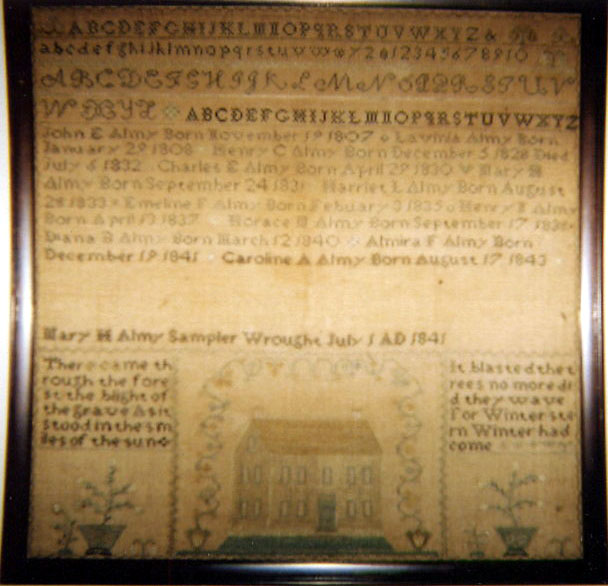 ABCDEFGHIJKLMNOPQRSTUVWXYZ &
abcdefghijklmnopqrstuvwxyz & 12345678910
ABCDEFGHIJKLMNOPQRSTUV
WXYZ ABCDEFGHIJKLMNOPQRSTUVWXYZ
John E Almy Born November 19 1807 Lavinia Almy Born
January 29 1808 Henry C Almy Born December 5 1828 Died
July 6 1832 Charles E Almy Born April 29 1830 Mary H
Almy Born September 24 1831 Harriet L Almy Born August
28 1833 Emeline F Almy Born Febuary 3 1835 Henry Almy
Born April 13 1837 Horace Almy Born September 17 1838
Diana B Almy Born March 12 1840 Almira F Almy Born
December 19 1841 Caroline A Almy Born August 17 1843
Mary H Almy Sampler Wrought July 1 AD 1841
There came th
rough the fore
st the blight of
the grave As it
stood in the sm
iles of the sun
It blasted the t
rees no more di
d they wave
For Winter ste
rn Winter had
come